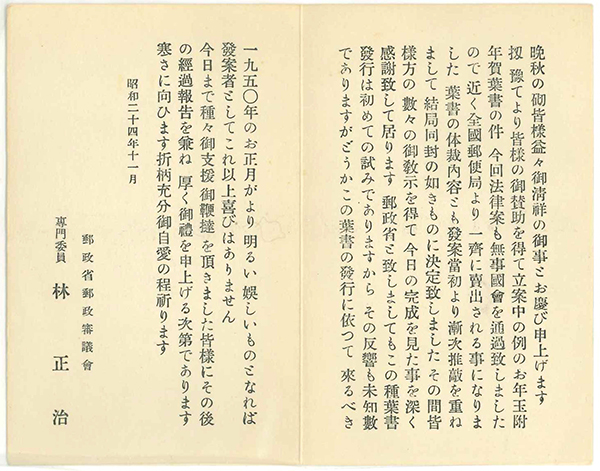 晩秋の砌皆様益々御清祥の御事とお慶び申上げます
扨 豫てより皆様の御賛助を得て立案中の例のお年玉附
年賀葉書の件 今回法律案も無事國會を通過致しました
ので 近く全國郵便局より一齊に賣出される事になりま
した 葉書の体裁内容とも發案當初より漸次推敲を重ね
まして 結局同封の如きものに決定致しました その間皆
様方の 數々の御敎示を得て 今日の完成を見た事を 深く
感謝致して居ります 郵政省と致しましてもこの種葉書
發行は初めての試みでありますから その反響も未知數
でありますがどうかこの葉書の發行に依つて 來るべき
一九五〇年のお正月がより 明るい 娯しいものとなれば
發案者としてこれ以上喜びはありません
今日まで種々御支援 御鞭撻を頂きました皆様にその後
の經過報告を兼ね 厚く御禮を申上げる次第であります
寒さに向ひます折柄充分御自愛の程祈ります
昭和二十四年十一月
郵政省郵政審議會
專門委員 林 正治